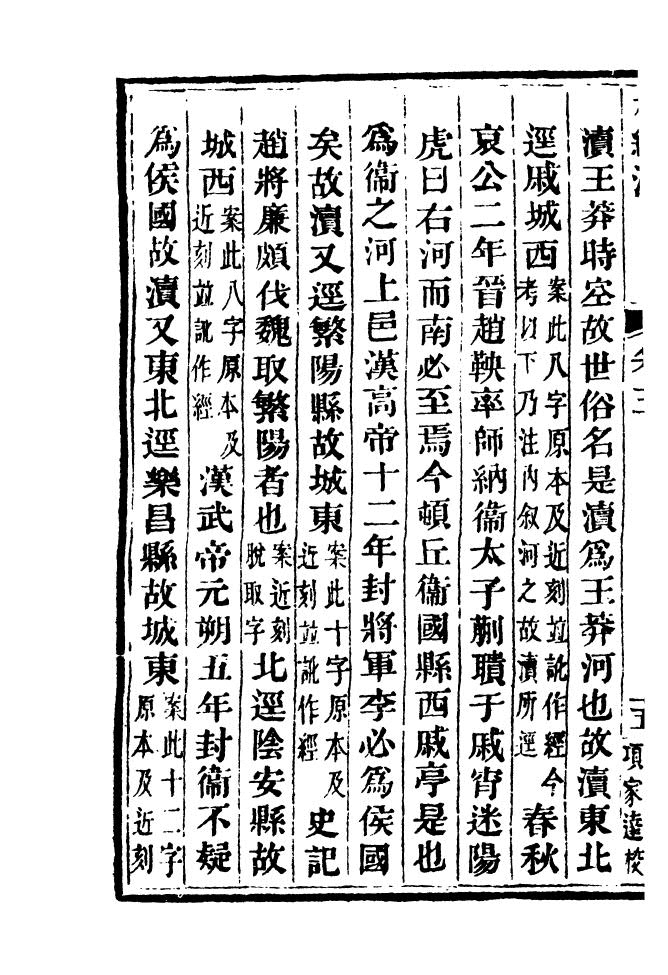 瀆王莽時空故世俗名是瀆爲王莽河也故瀆東北
逕戚城西案此八字原本及近刻並訛作經今考以下乃注內叙河之故瀆所逕春秋
哀公二年晉趙鞅率師納衞太子蒯聵于戚宵迷陽
虎曰右河而南必至焉今頓丘衞國縣西戚亭是也
爲衞之河上邑漢高帝十二年封將軍李必爲侯國
矣故瀆又逕繁陽縣故城東案此十字原本及近刻並訛作經史記
趙將廉頗伐魏取繁陽者也案近刻脫取字北逕陰安縣故
城西案此八字原本及近刻並訛作經漢武帝元朔五年封衞不疑
爲侯國故瀆又東北逕樂昌縣故城東案此十二字原本及近刻
項家達校